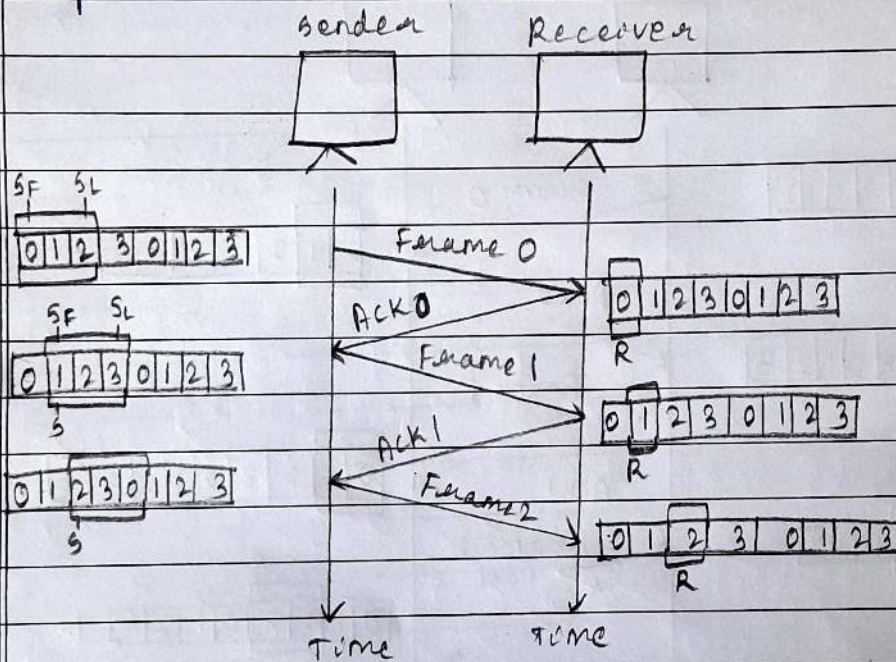 Sender Receiver
SF SL
0 1 2 3 0 1 2 3
Frame 0
0 1 2 3 0 1 2 3
R
ACK0
SF SL
0 1 2 3 0 1 2 3
S
Frame 1
0 1 2 3 0 1 2 3
R
ACK1
0 1 2 3 0 1 2 3
S
Frame2
0 1 2 3 0 1 2 3
R
Time Time